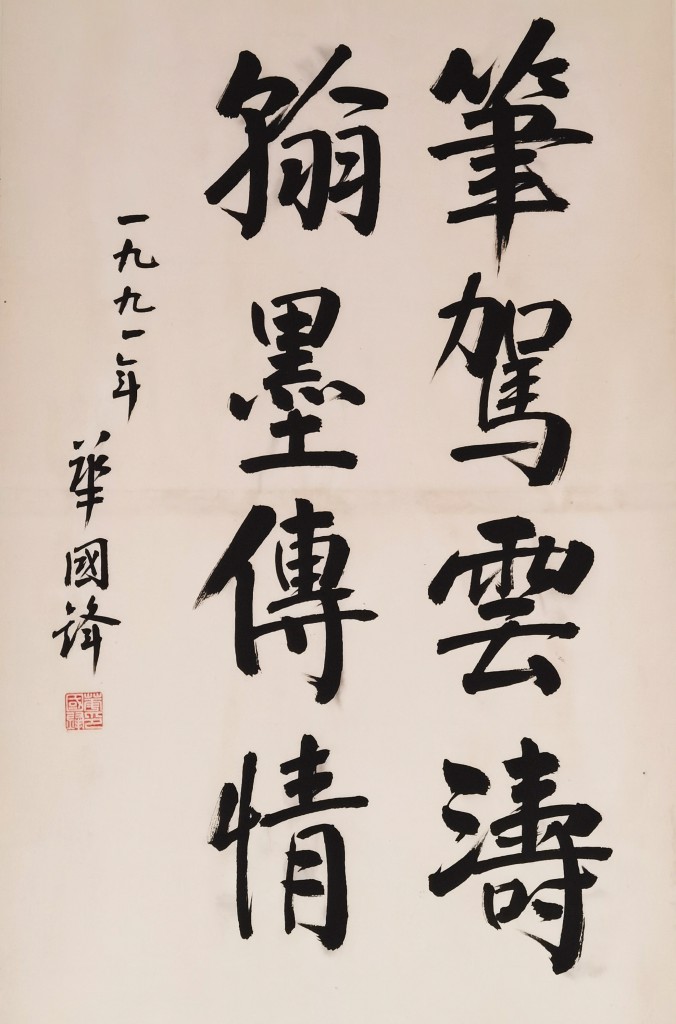 筆駕雲濤
翰墨傳情
一九九一年
華國鋒